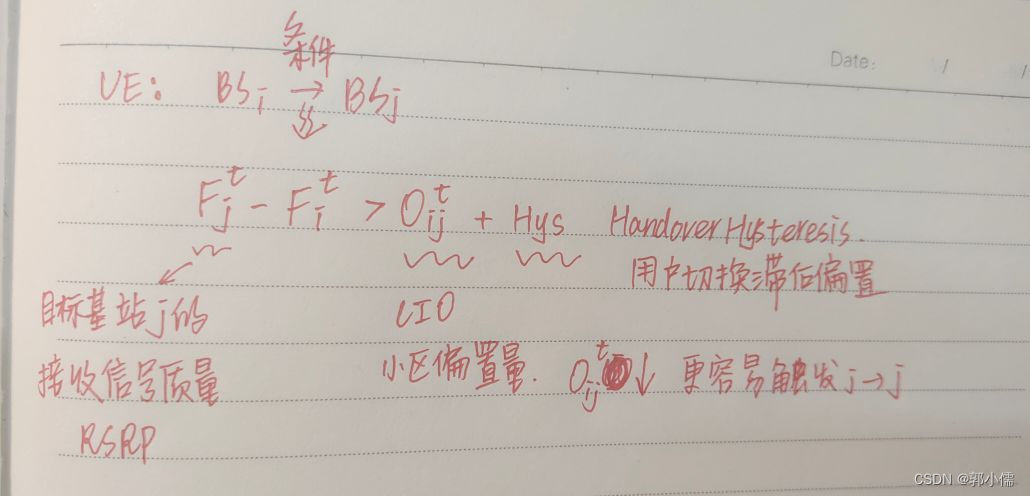 条件
Date: / /
UE: BSi → BSj
⇓
F_j^t - F_i^t > O_ij^t + Hys Handover Hysteresis.
用户切换滞后偏置
目标基站j的 CIO
接收信号质量 小区偏置量. O_ij^t ↓ 更容易触发j→j
RSRP
CSDN @郭小儒